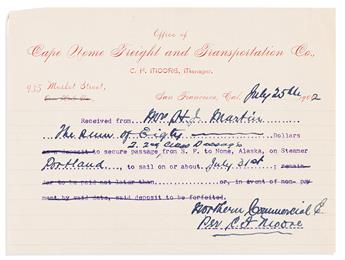 Office of
Cape Nome Freight and Transportation Co.,
C. H. MOORE, Manager.
935 Market Street,
San Francisco, Cal. July 25th 1902
Received from Mr H J Martin
The Sum of Eighty Dollars
2. 2nd Class Passage
as deposit to secure passage from S. F. to Nome, Alaska, on Steamer
Portland, to sail on or about July 31st; remain-
der to be paid not later than or, in event of non-pay
ment by said date, said deposit to be forfeited.
Northern Commercial C.
Per C H Moore